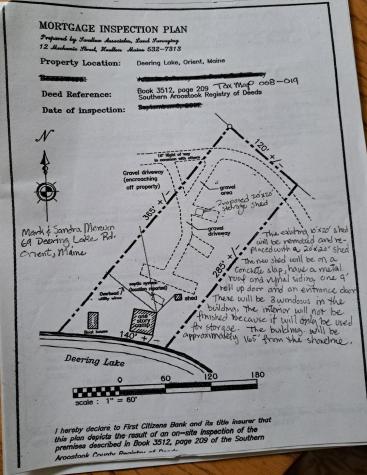 MORTGAGE INSPECTION PLAN
Prepared by Swallow Associates, Land Surveying
12 Mechanic Street, Houlton Maine 532-7313
Property Location: Deering Lake, Orient, Maine
Deed Reference: Book 3512, page 209 Tax Map 008-019
Southern Aroostook Registry of Deeds
Date of inspection:
N
right of way
in common with others
120' +/-
Gravel driveway
(encroaching
off property)
gravel
area
Proposed 20'x20'
storage shed
365' +/-
gravel
driveway
Mark & Sandra
69 Deering Lake Rd.
Orient, Maine
285' +/-
The existing 10'x20' shed
will be removed and re-
placed with a 20'x20' shed
The new shed will be on a
concrete slap, have a metal
roof and vynal siding, one 9'
roll up door and an entrance door
There will be 3 windows in the
building. The interior will not be
finished because it will only be used
for storage. The building will be
approximately 165' from the shoreline.
septic system
(location reported)
Overhead
utility wires
shed
one
story
camp
Boat house
140' +/-
Deering Lake
0 60 120 180
scale : 1" = 60'
I hereby declare to First Citizens Bank and its title insurer that
this plan depicts the result of an on-site inspection of the
premises described in Book 3512, page 209 of the Southern
Aroostook County Registry of Deeds